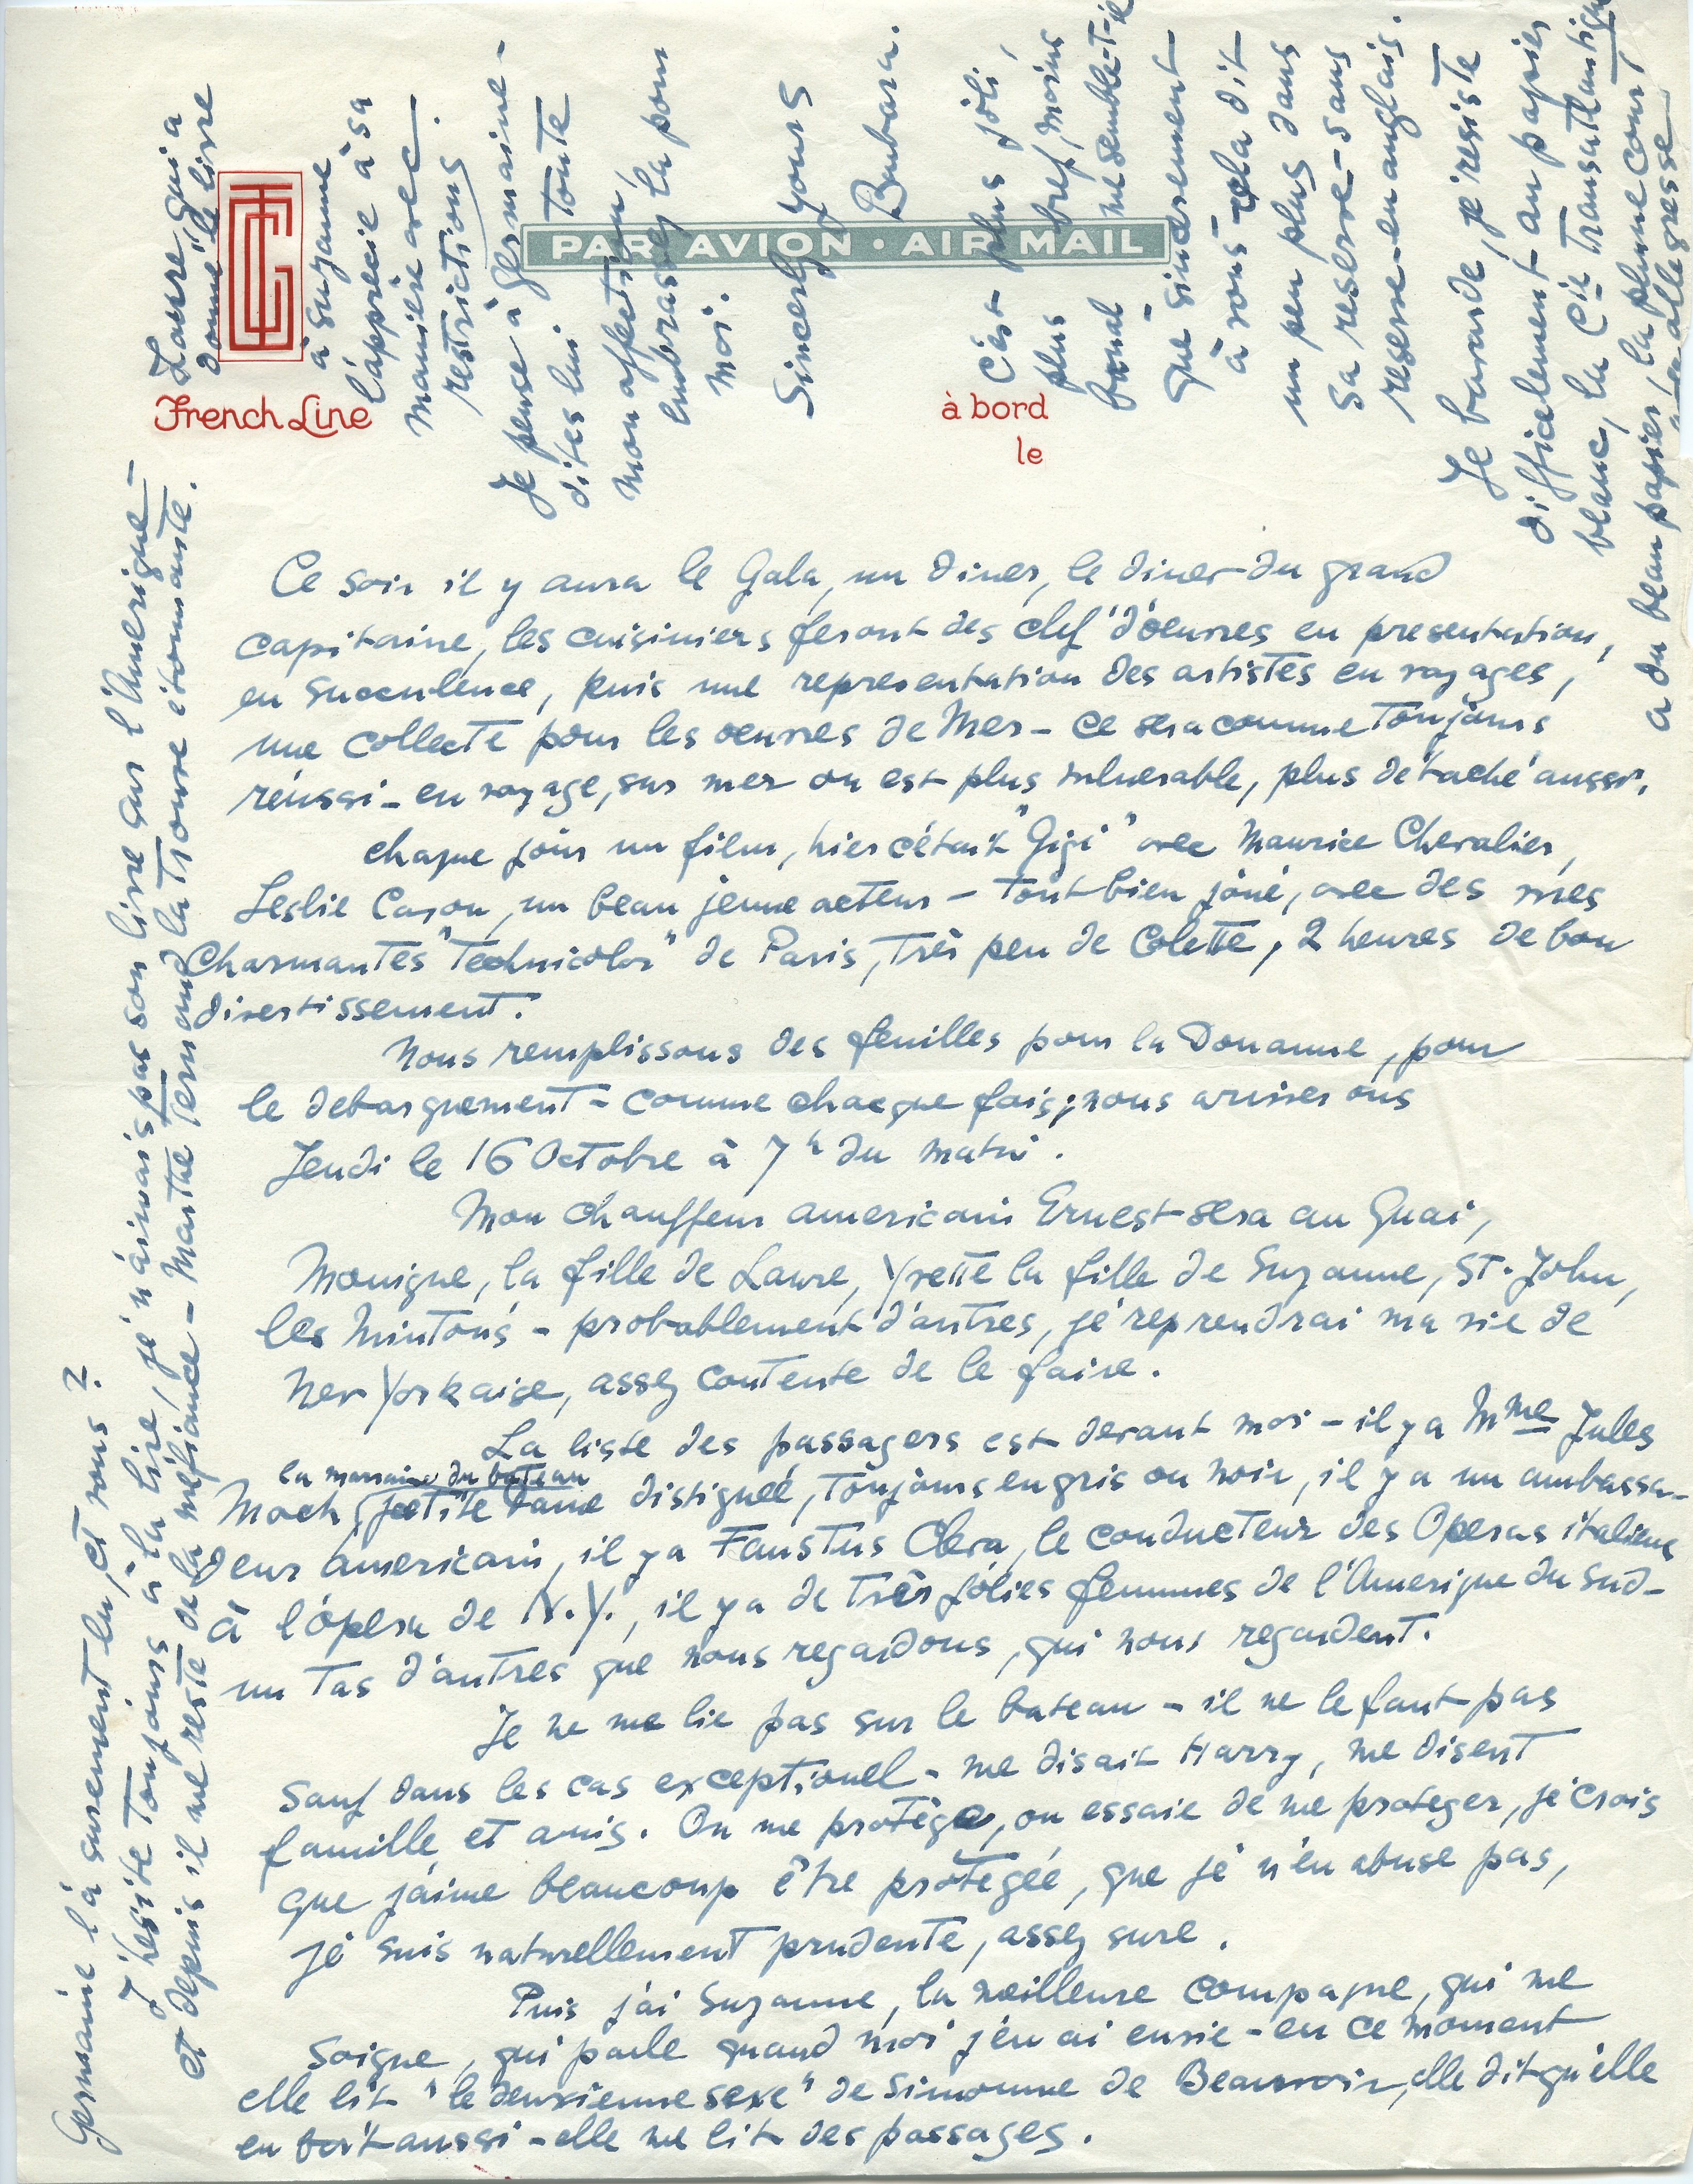 French Line
PAR AVION · AIR MAIL
à bord
le
Ce soir il y aura le Gala, un diner, le diner du grand
capitaine, les cuisiniers feront des clef d'oeuvres en presentation,
en succulence, puis une representation des artistes en voyages,
une collecte pour les oeuvres de Mer - ce sera comme toujours
réussi - en voyage, sur mer on est plus vulnerable, plus détaché aussi.
chaque jour un film, hier c'était "Gigi" avec Maurice Chevalier,
Leslie Caron, un beau jeune acteur - tout bien joué, avec des vues
charmantes "Technicolor" de Paris, très peu de Colette, 2 heures de bon
divertissement.
Nous remplissons des feuilles pour la Douanne, pour
le debarquement - comme chacque fois; nous arriverons
Jeudi le 16 Octobre à 7h du matin.
Mon chauffeur americain Ernest sera au Quai,
Monique, la fille de Laure, Yvette la fille de Suzanne, St. John,
les Mintons - probablement d'autres, je reprendrai ma vie de
New Yorkaise, assez contente de le faire.
La liste des passagers est devant moi - il y a Mme Jules
la marraine du bateau
Moch, petite dame distiguée, toujours en gris ou noir, il y a un ambassa-
deur americain, il y a Faustus Clera, le conducteur des Operas italiens
à l'opéra de N.Y., il y a de très jolies femmes de l'Amerique du Sud -
un tas d'autres que nous regardons, qui nous regardent.
Je ne me lie pas sur le bateau - il ne le faut pas
sauf dans les cas exceptionel - me disait Harry, me disent
famille et amis. On me protège, on essaie de me proteger, je crois
que j'aime beaucoup être protegée, que je n'en abuse pas,
je suis naturellement prudente, assez sure.
Puis j'ai Suzanne, la meilleure compagne, qui me
soigne, qui parle quand moi j'en ai envie - en ce moment
elle lit "le deuxieme sexe" de Simonne de Beauvoir, elle dit qu'elle
en fait aussi - elle me lit des passages.
Germaine l'a surement lu, et vous?
J'hesite toujours à la lire, je n'aimais pas son livre sur l'Amerique -
et depuis il me reste de la méfiance - Marthe Termand la trouve étonnante.
Laure, qui a
donné le livre
à Suzanne
l'apprécie à sa
manière avec
restrictions.
Je pense à Germaine -
dites lui toute
mon affection,
embrassez la pour
moi.
Sincerely yours
Barbara.
c'est plus joli,
plus bref, moins
banal me semble-t-il
que sincerement
à vous - cela dit
un peu plus dans
sa reserve - sans
reserve - en anglais.
Je bavarde, je resiste
difficilement au papier
blanc, la Cie Transatlantique
a du beau papier, la plume court
allegresse